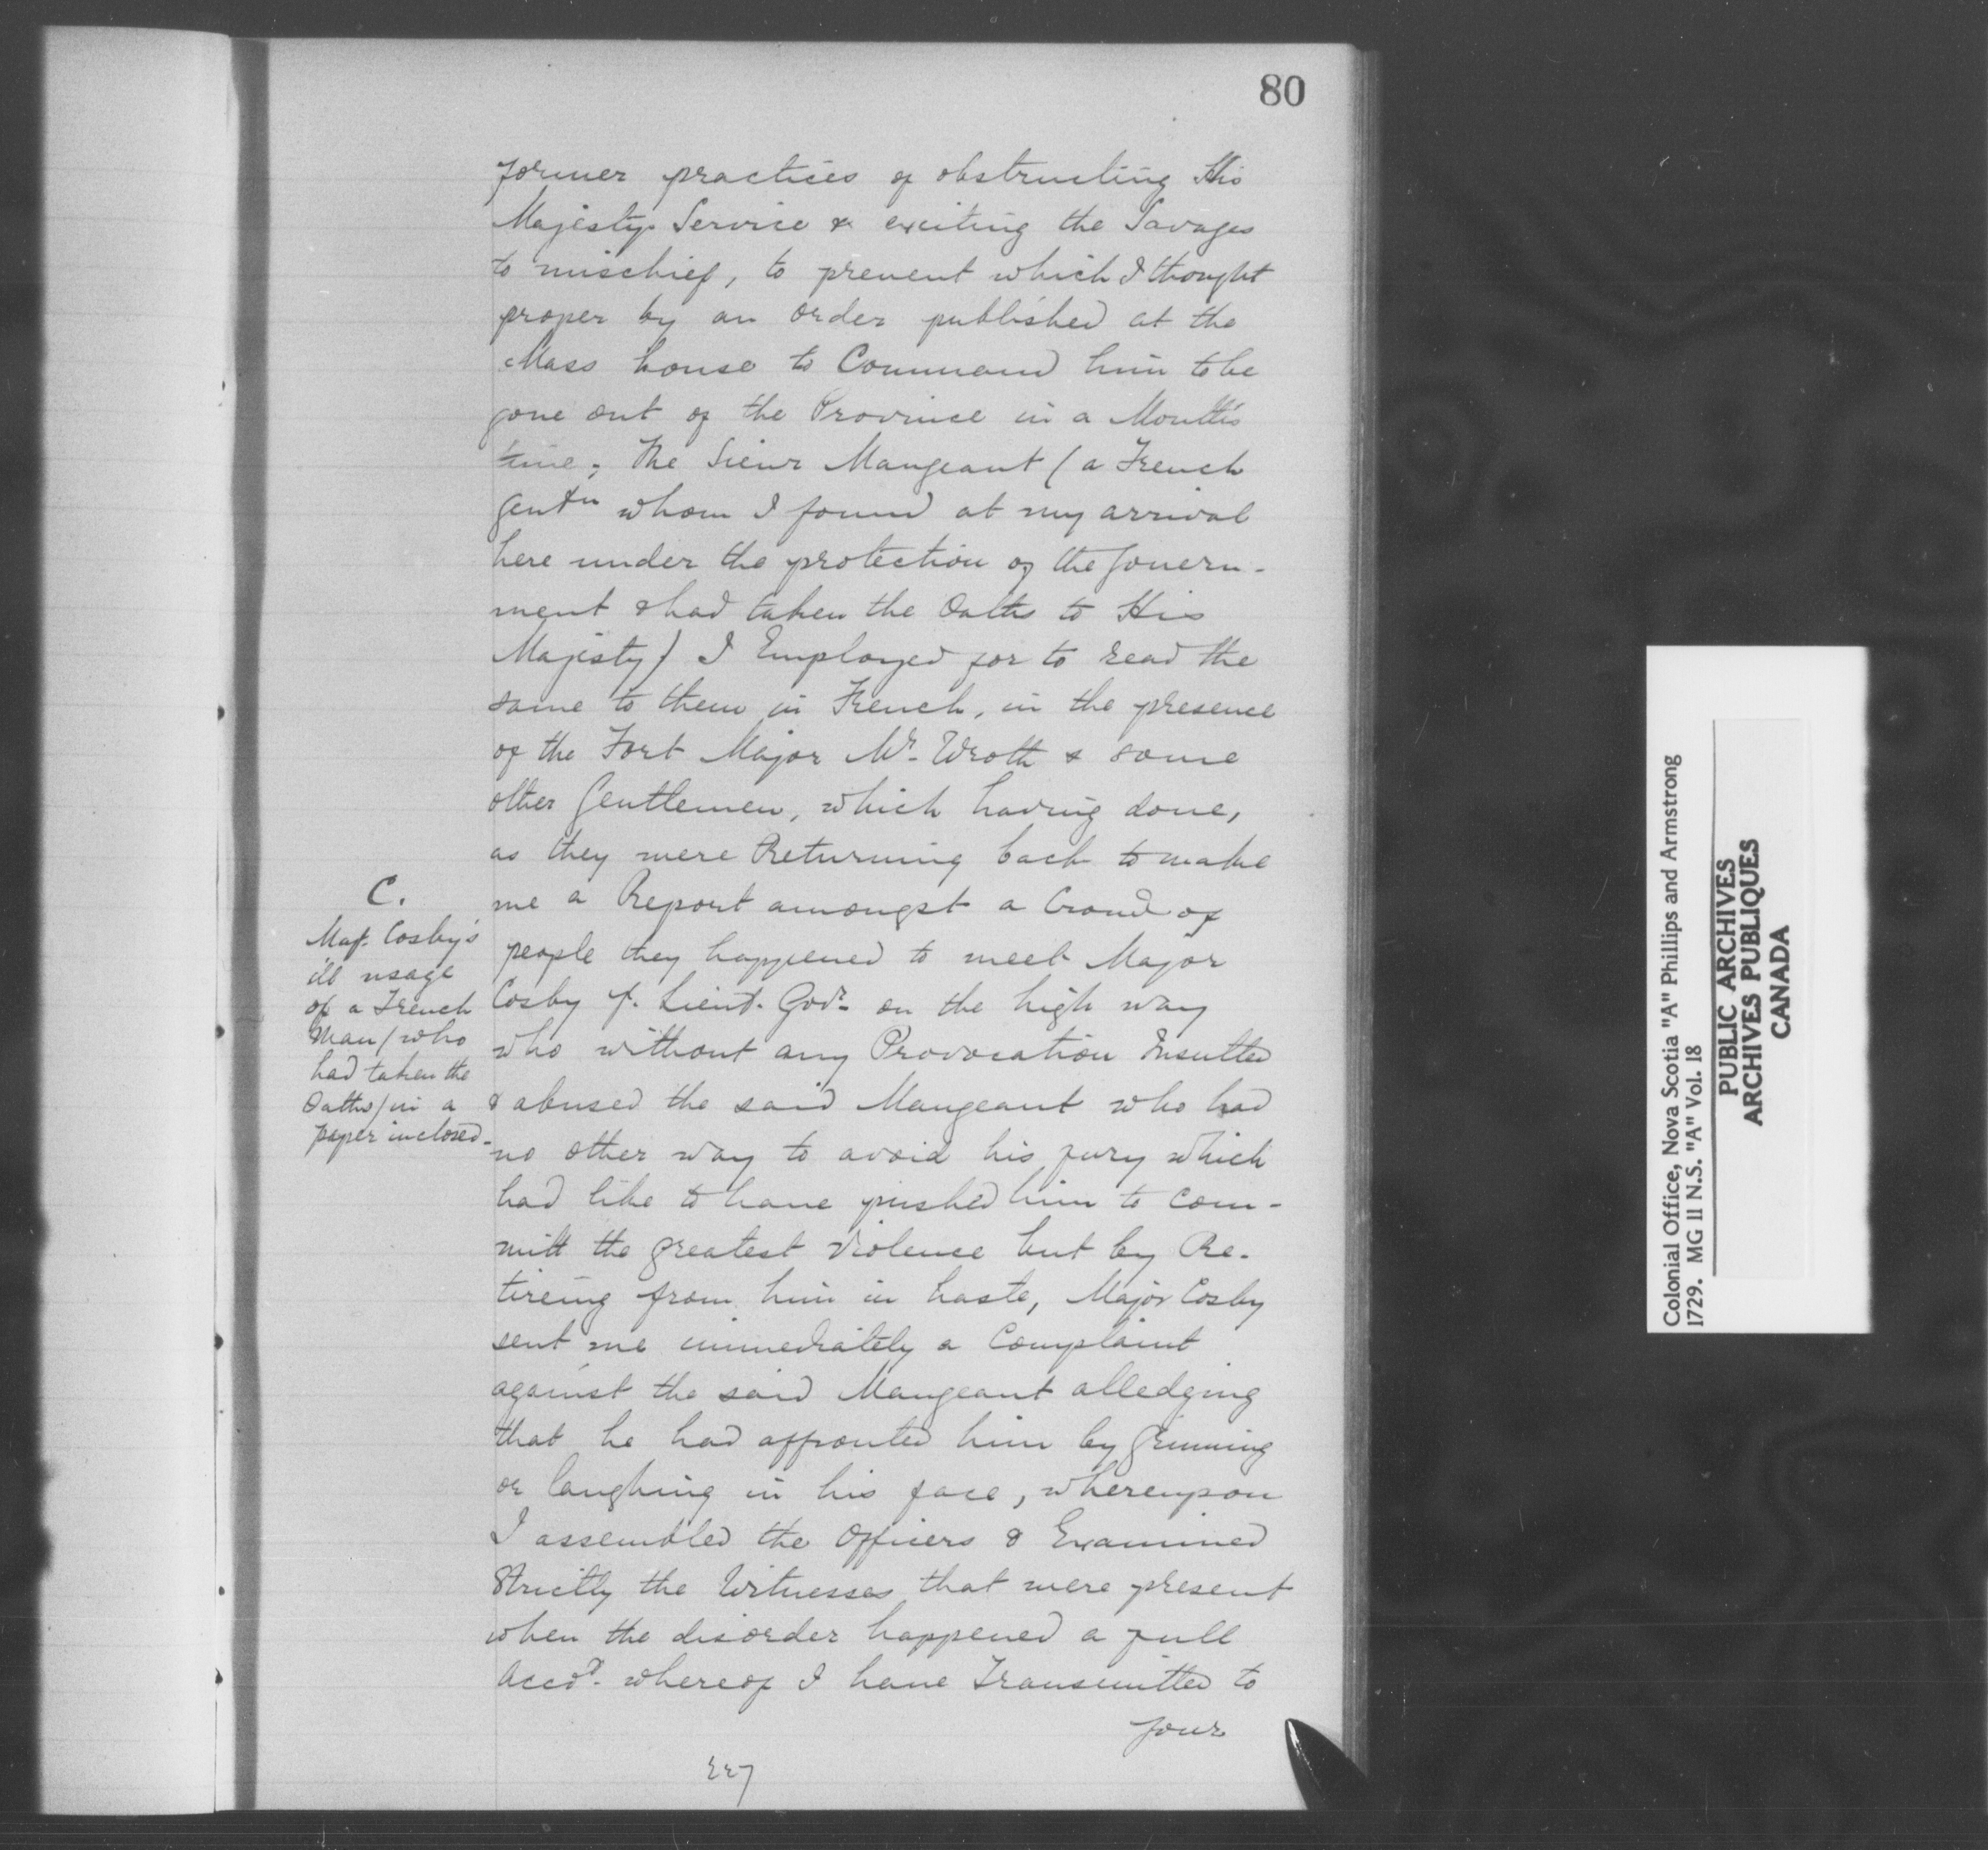 80
former practices of obstructing His
Majestys Service & exciting the Savages
to mischief, to prevent which I thought
proper by an order published at the
Mass house to Command him to be
gone out of the Province in a Month's
time; The Sieur Mangeant (a French
Gentn whom I found at my arrival
here under the protection of the Govern-
ment & had taken the Oaths to His
Majesty) I Employed for to read the
same to them in French, in the presence
of the Fort Major Mr. Wroth & some
other Gentlemen, which having done,
as they were Returning back to make
me a Report amongst a Croud of
people they happened to meet Major
Cosby ye. Lieut. Govr. on the high way
who without any Provocation Insulted
& abused the said Mangeant who had
no other way to avoid his fury which
had like to have pushed him to com-
mitt the greatest Violence but by Re-
tireing from him in haste, Major Cosby
sent me immediately a Complaint
against the said Mangeant alledging
that he had affronted him by Grinning
or laughing in his face, whereupon
I assembled the Officers & Examined
Strictly the Witnesses that were present
when the disorder happened a full
Acco.t whereof I have Transmitted to
your
C.
Maj. Cosby's
ill usage
of a French
Man (who
had taken the
Oaths) in a
paper inclosed.
227
Colonial Office, Nova Scotia "A" Phillips and Armstrong
1729. MG 11 N.S. "A" Vol. 18
PUBLIC ARCHIVES
ARCHIVES PUBLIQUES
CANADA